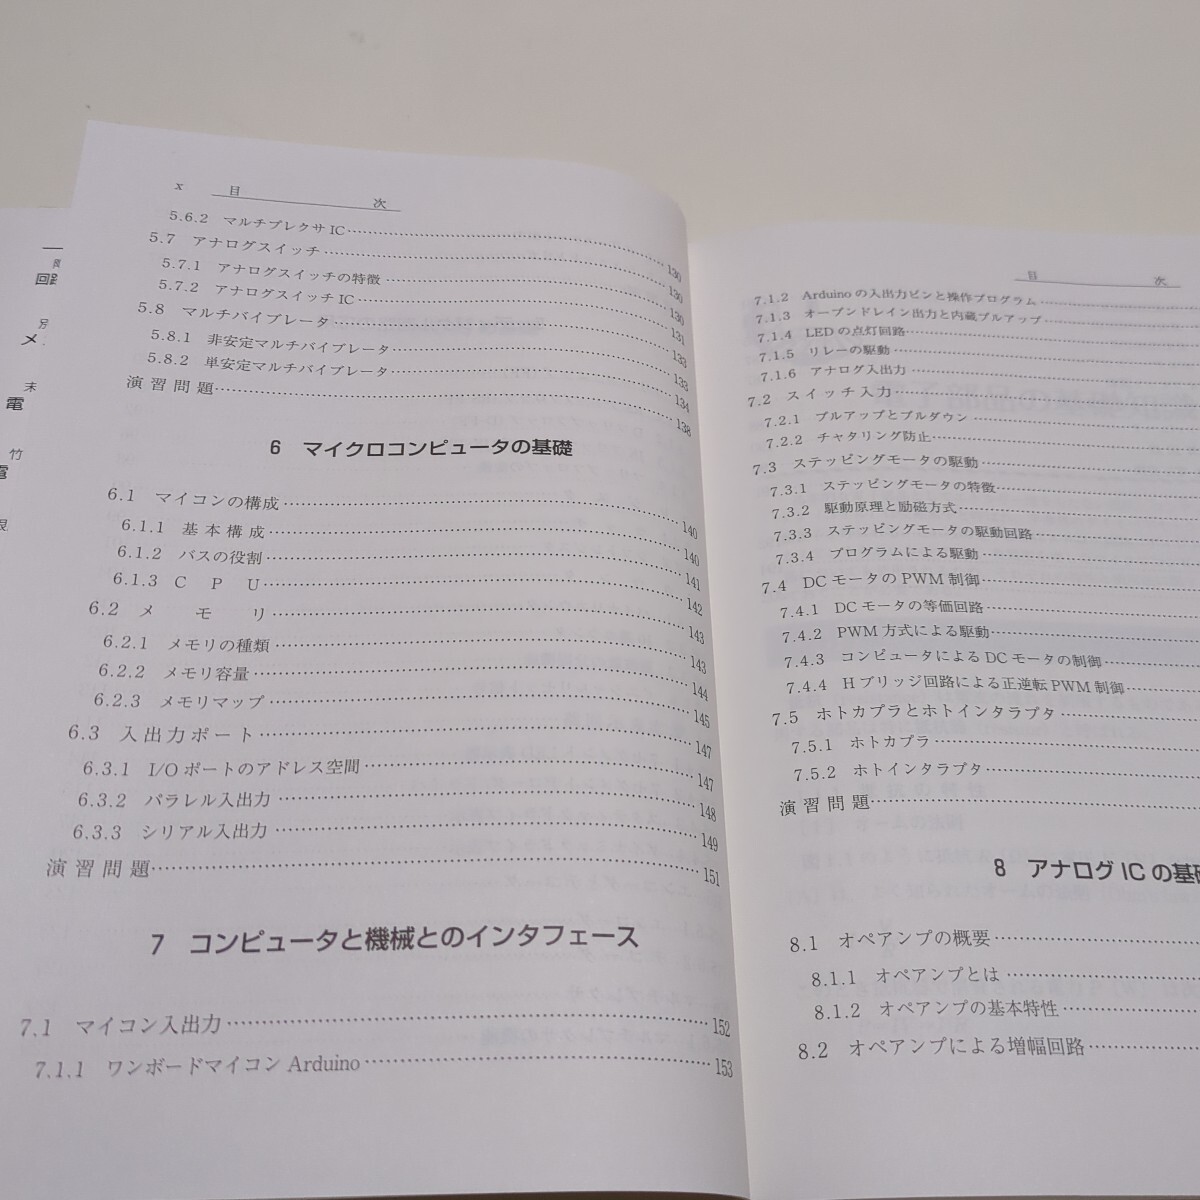 x 目 次
5.6.2 マルチプレクサ IC 130
5.7 アナログスイッチ 130
5.7.1 アナログスイッチの特徴 130
5.7.2 アナログスイッチ IC 131
5.8 マルチバイブレータ 133
5.8.1 非安定マルチバイブレータ 133
5.8.2 単安定マルチバイブレータ 134
演習問題 138
6 マイクロコンピュータの基礎
6.1 マイコンの構成 140
6.1.1 基本構成 140
6.1.2 バスの役割 141
6.1.3 C P U 142
6.2 メ モ リ 143
6.2.1 メモリの種類 143
6.2.2 メモリ容量 144
6.2.3 メモリマップ 145
6.3 入出力ポート 147
6.3.1 I/O ポートのアドレス空間 147
6.3.2 パラレル入出力 148
6.3.3 シリアル入出力 149
演習問題 151
7 コンピュータと機械とのインタフェース
7.1 マイコン入出力 152
7.1.1 ワンボードマイコン Arduino 153
目 次
7.1.2 Arduino の入出力ピンと操作プログラム
7.1.3 オープンドレイン出力と内蔵プルアップ
7.1.4 LED の点灯回路
7.1.5 リレーの駆動
7.1.6 アナログ入出力
7.2 スイッチ入力
7.2.1 プルアップとプルダウン
7.2.2 チャタリング防止
7.3 ステッピングモータの駆動
7.3.1 ステッピングモータの特徴
7.3.2 駆動原理と励磁方式
7.3.3 ステッピングモータの駆動回路
7.3.4 プログラムによる駆動
7.4 DC モータの PWM 制御
7.4.1 DC モータの等価回路
7.4.2 PWM 方式による駆動
7.4.3 コンピュータによる DC モータの制御
7.4.4 H ブリッジ回路による正逆転 PWM 制御
7.5 ホトカプラとホトインタラプタ
7.5.1 ホトカプラ
7.5.2 ホトインタラプタ
演習問題
8 アナログ IC の基礎
8.1 オペアンプの概要
8.1.1 オペアンプとは
8.1.2 オペアンプの基本特性
8.2 オペアンプによる増幅回路